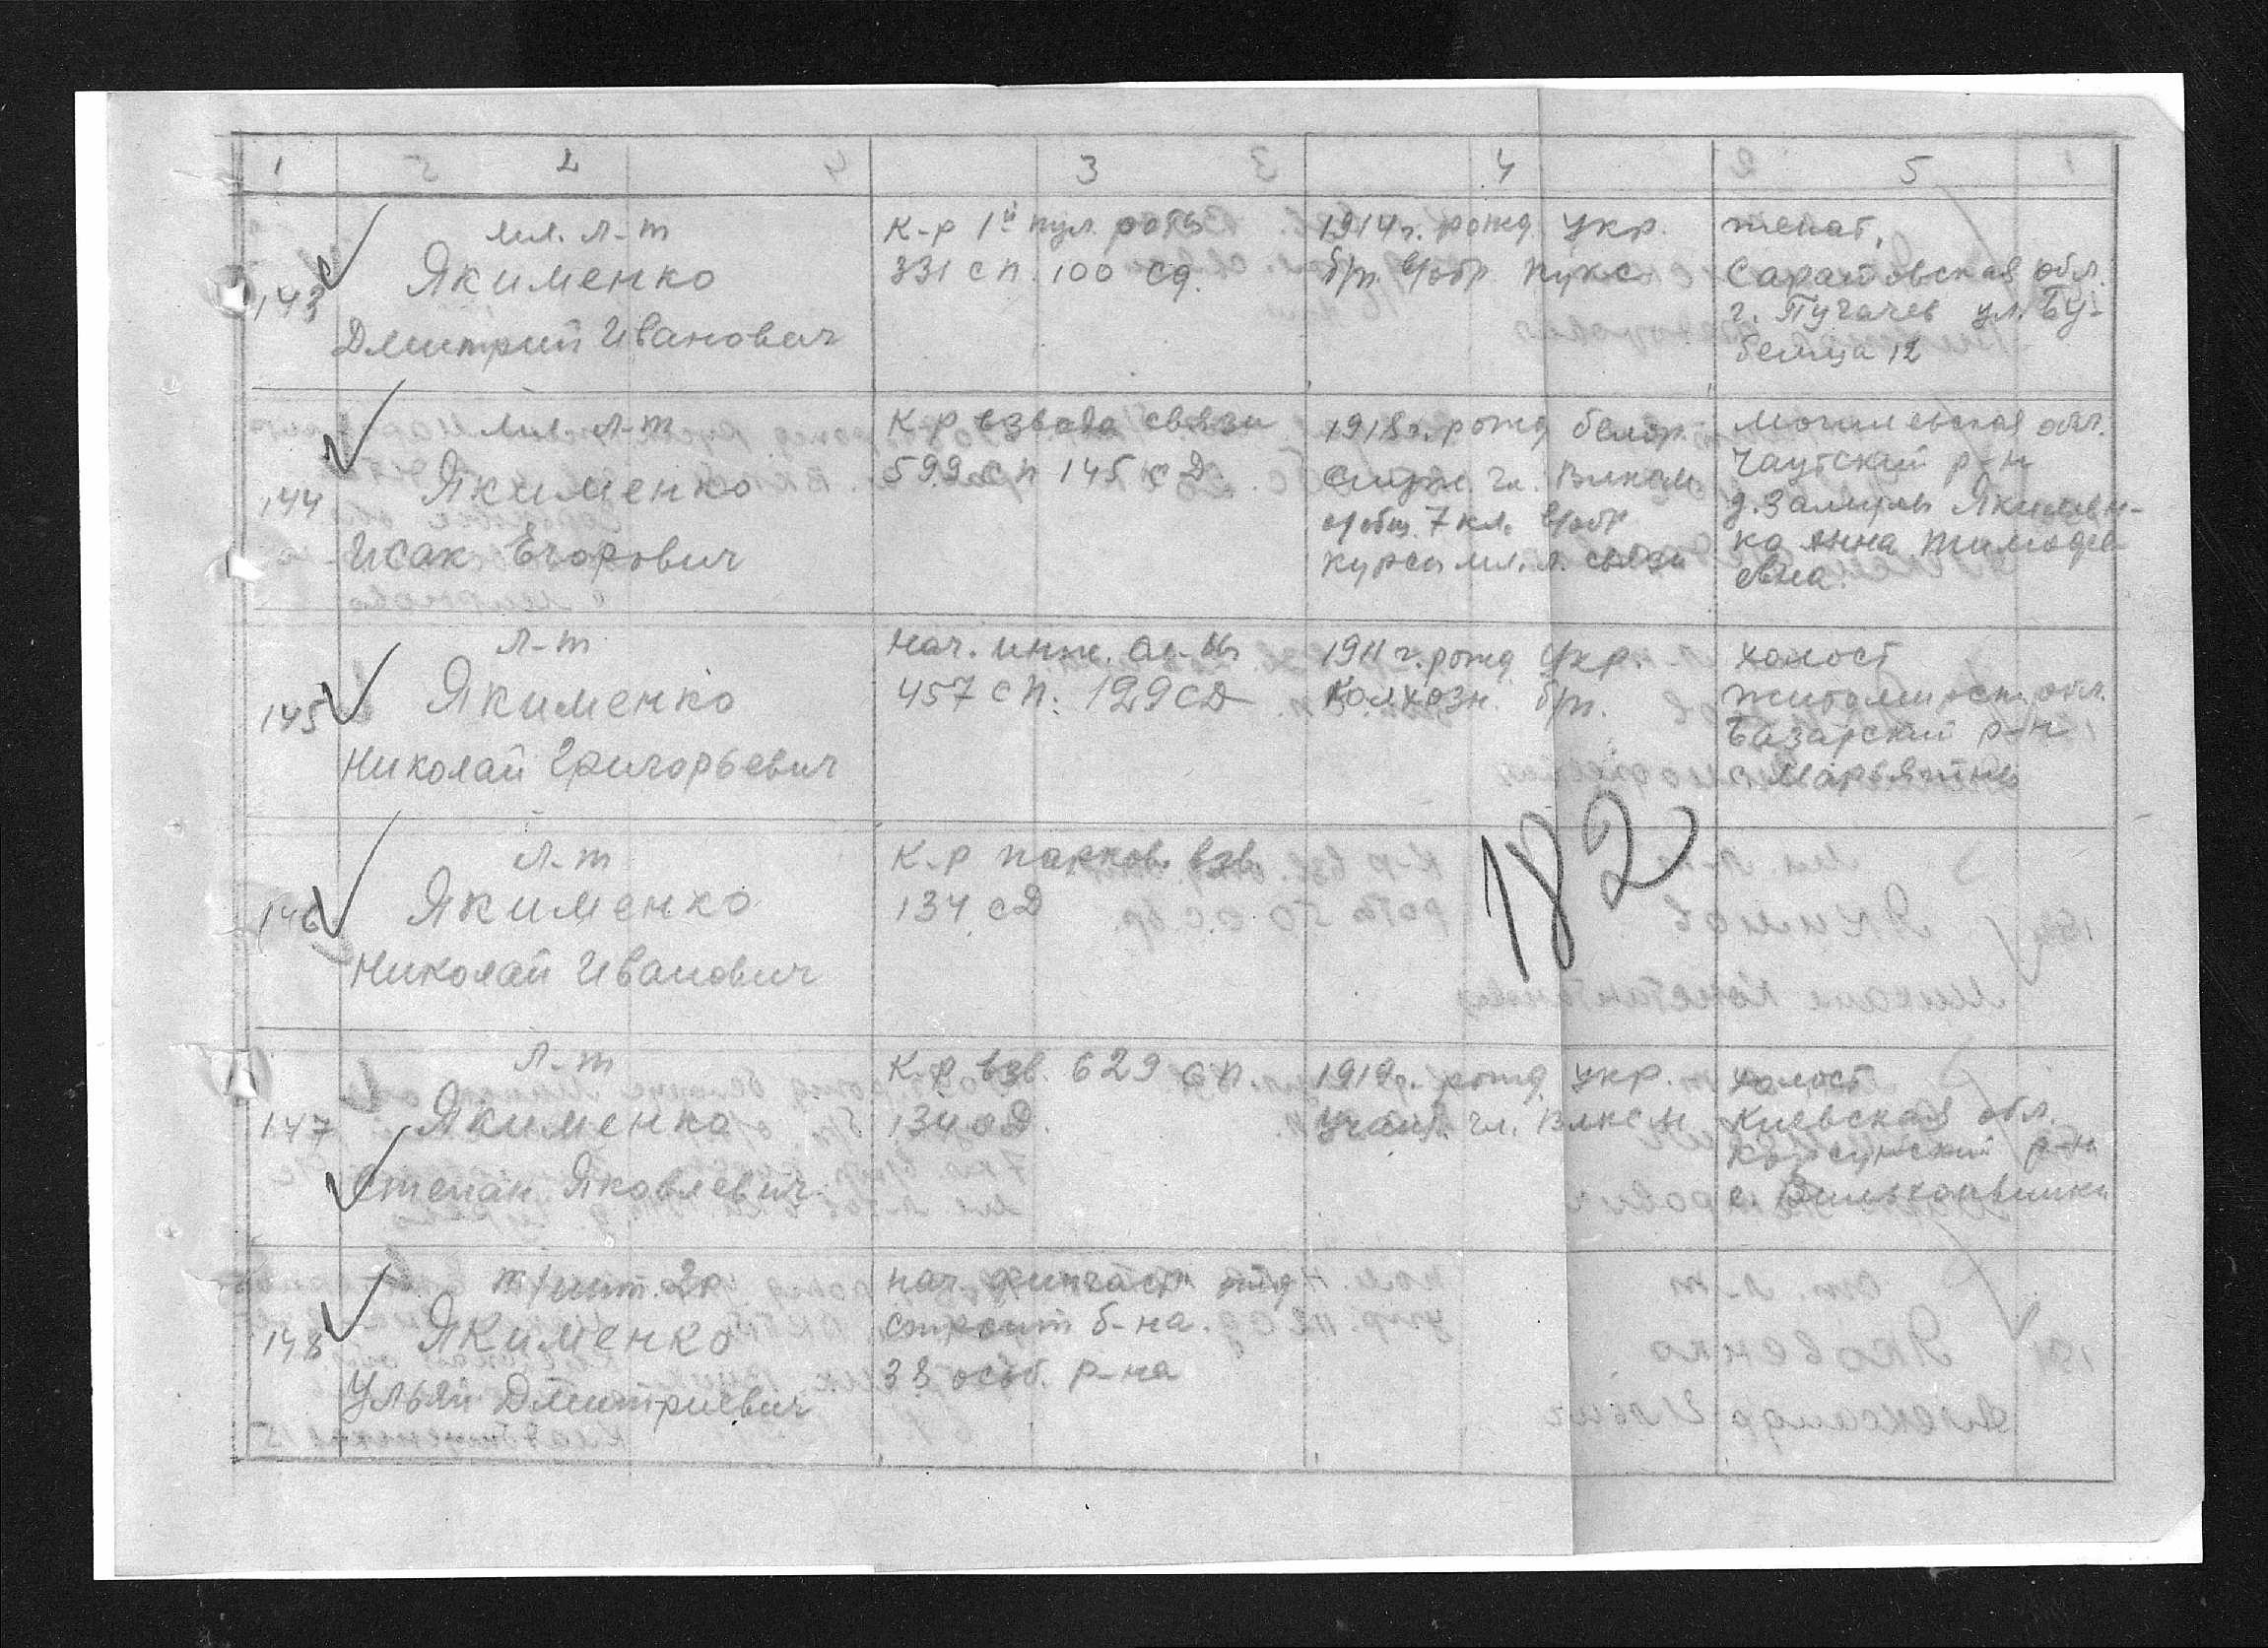 1 2 3 4 5
143
мл. л-т
Якименко
Дмитрий Иванович
к-р 1й пул. роты
331 сп. 100 сд.
1914 г. рожд. укр.
б/п. в/обр. пукс
женат,
Саратовская обл.
г. Пугачев ул. Бу-
бенца 12
144
мл. л-т
Якименко
Исак Егорович
к-р взвода связи
599 сп 145 сД
1918 г. рожд. белор.
служ. чл. Влксм
о/общ. 7 кл. в/обр
курсы мл. л. связи
Могилевская обл.
Чаусский р-н
д. Якимен-
ко Анна Тимофе-
евна.
145
л-т
Якименко
Николай Григорьевич
нач. инж. сл-бы
457 сп. 129 сД
1911 г. рожд. укр.
колхозн. б/п.
холост
Житомирск. обл.
Базарский р-н
с. Марьятин
146
л-т
Якименко
Николай Иванович
к-р парков. взв.
134 сД
182
147
л-т
Якименко
Степан Яковлевич
к-р взв. 629 сп.
134 сД.
1919 г. рожд. укр.
учащ. чл. Влксм
холост
Киевская обл.
Корсунский р-н
с.
148
т/инт. 2р
Якименко
Ульян Дмитриевич
нач. финчасти отд
строит б-на.
38 особ. р-на